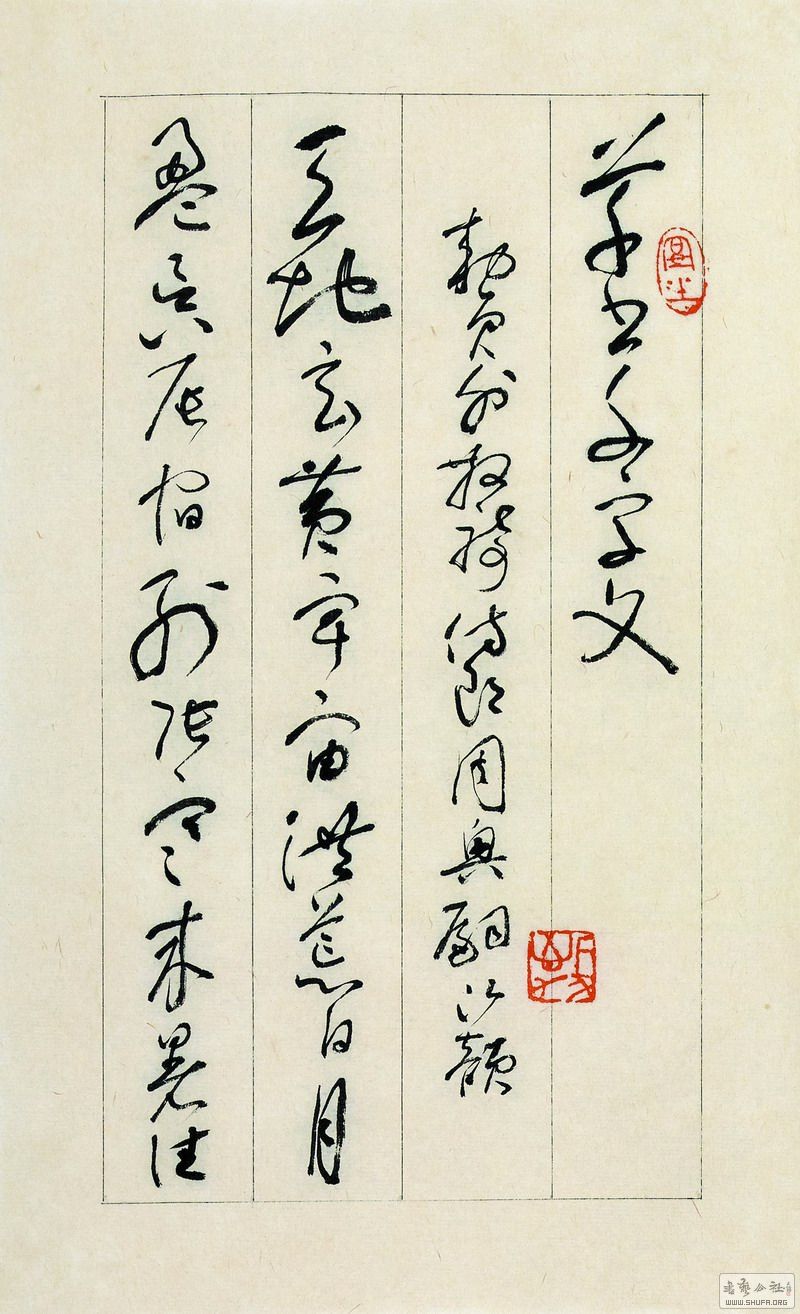 草书千字文
敕员外散骑侍郎周兴嗣次韵
天地玄黄宇宙洪荒日月
盈昃辰宿列张寒来暑往
书艺公社
WWW.SHUFA.ORG